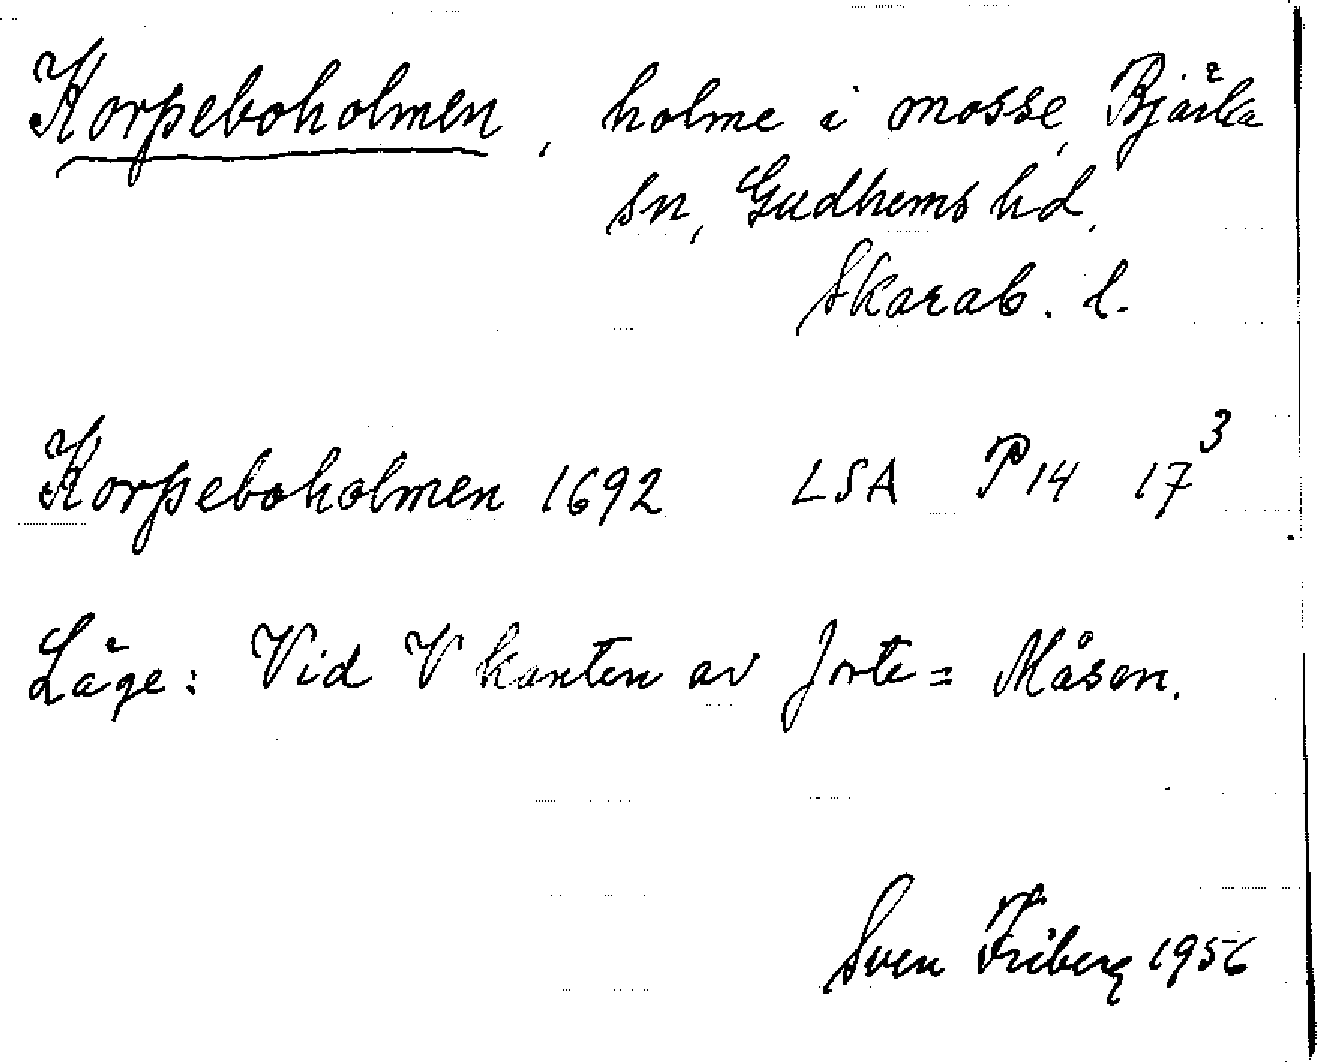 Korpeboholmen, holme i mosse, Bjärka
sn, Gudhems hd,
Skarab. l.
Korpeboholmen 1692 LSA P14 17³
Läge: Vid V kanten av Jorte= Måsen.
Sven Friberg 1956